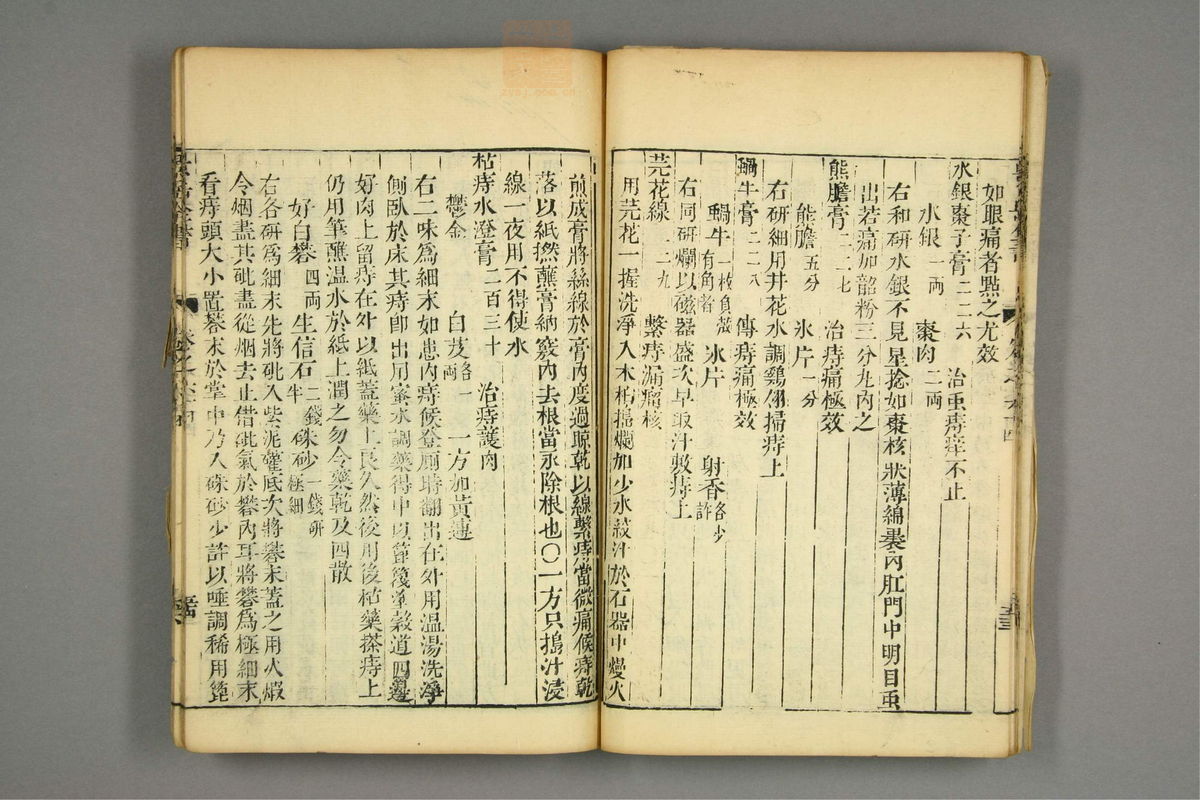 如眼痛者點之尤效
水銀棗子膏二二六 治䖝痔痒不止
水銀一兩 棗肉二兩
右和研水銀不見星捻如棗核狀薄綿裹內肛門中明目䖝
出若痛加韶粉三分丸內之
熊膽膏二二七 治痔痛極效
熊膽五分 氷片一分
右研細用井花水調鷄翎掃痔上
蝸牛膏二二八 傅痔痛極效
蝸牛一枚負殼有角者 氷片 射香各少許
右同研爛以磁器盛次早取汁敷痔上
芫花線二二九 繫痔漏瘤核
用芫花一握洗淨入木杵搗爛加少水絞汁於石器中熳火
煎成膏將絲線於膏內度過晾乾以線繫痔當微痛候痔乾
落以紙撚蘸膏納竅內去根當永除根也〇一方只搗汁浸
線一夜用不得使水
枯痔水澄膏二百三十 治痔護肉
鬱金 白芨各一兩 一方加黃連
右二味爲細末如患內痔候登厠時翻出在外用温湯洗淨
側臥於床其痔卽出用蜜水調藥得中以篦箆塗穀道四邊
好肉上留痔在外以紙蓋藥上良久然後用後枯藥搽痔上
仍用筆蘸温水於紙上潤之勿令藥乾及四散
好白礬四兩 生信石二錢半 硃砂一錢研極細
右各研爲細末先將砒入紫泥礶底次將礬末蓋之用火煆
令烟盡其砒盡從烟去止借砒氣於礬內耳將礬爲極細末
看痔頭大小置礬末於掌中乃入硃砂少許以唾調稀用篦